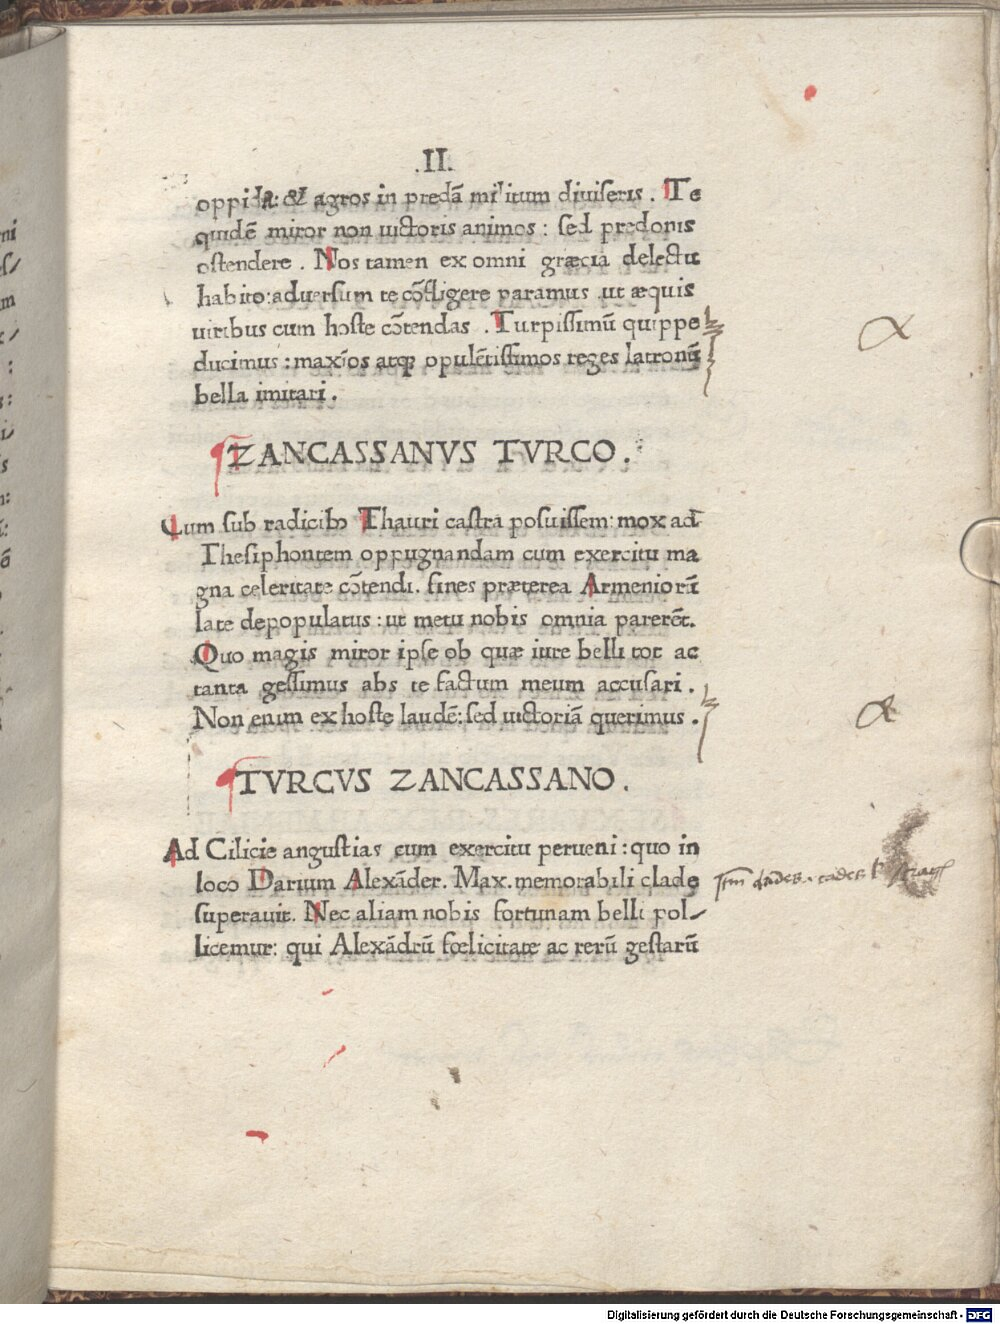 .II.
oppida: & agros in predā militum diuiseris . Te
quidē miror non uictoris animos : sed predonis
ostendere . Nos tamen ex omni græcia delectu
habito: aduersum te cōfligere paramus ut æquis
uiribus cum hoste cōtendas . Turpissimū quippe
ducimus : maxīos atq; opulētissimos reges latronū
bella imitari .
ZANCASSANVS TVRCO .
Cum sub radicibꝰ Thauri castra posuissem: mox ad
Thesiphontem oppugnandam cum exercitu ma
gna celeritate cōtendi. fines præterea Armeniorū
late depopulatus : ut metu nobis omnia parerēt.
Quo magis miror ipse ob quæ iure belli tot ac
tanta gessimus abs te factum meum accusari .
Non enim ex hoste laudē: sed uictoriā querimus .
TVRCVS ZANCASSANO .
Ad Cilicie angustias cum exercitu perueni : quo in
loco Darium Alexāder. Max. memorabili clade
superauit. Nec aliam nobis fortunam belli pol/
licemur: qui Alexādrū fœlicitate ac rerū gestarū
Digitalisierung gefördert durch die Deutsche Forschungsgemeinschaft - DFG